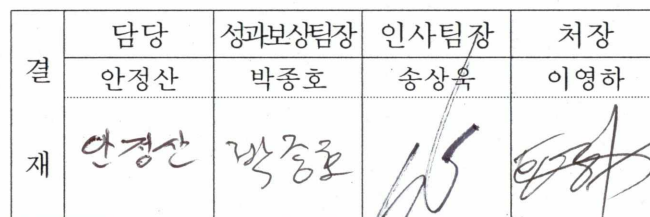 결재
담당 성과보상팀장 인사팀장 처장
안정산 박종호 송상욱 이영하
안정산 박종호